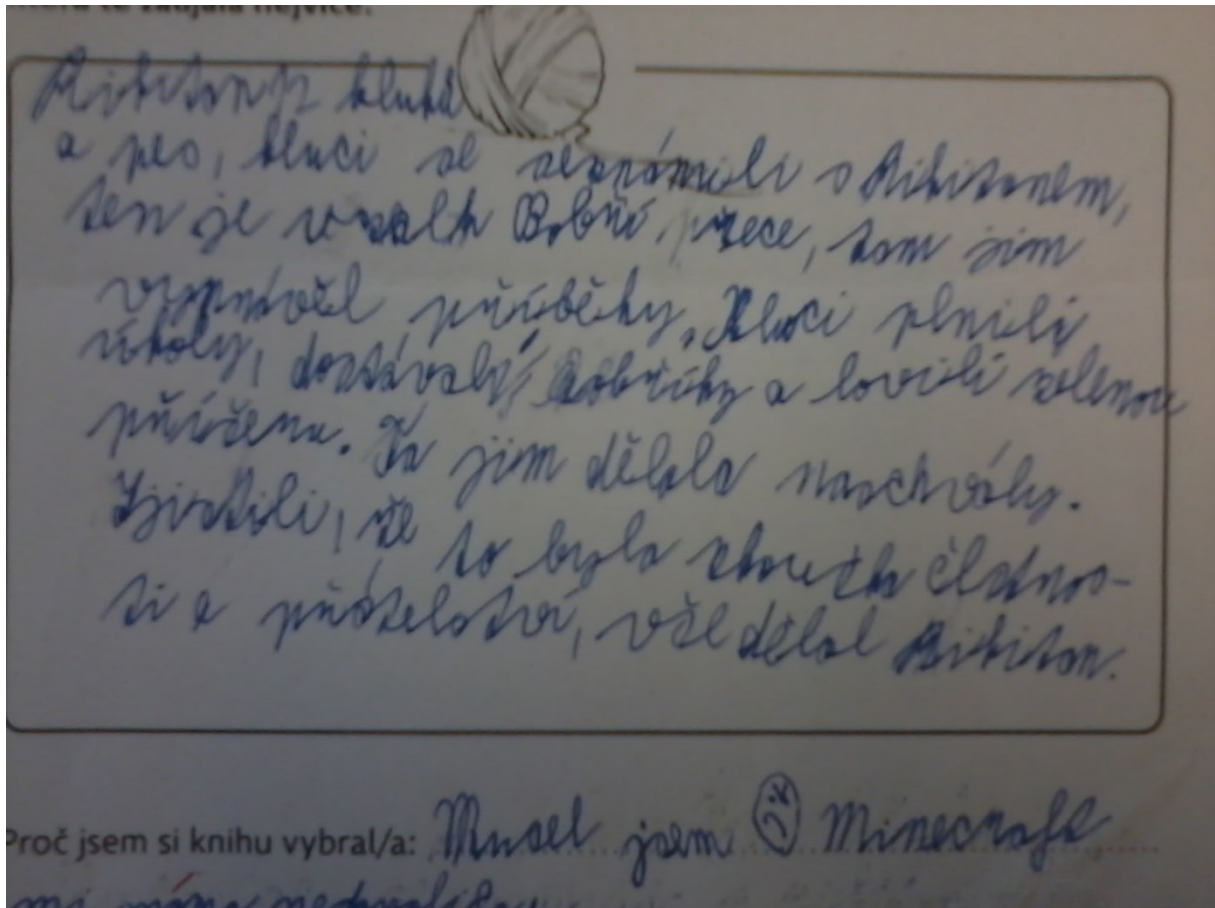 která tě zaujala nejvíce:
Rikitanp kluků
a pes, kluci se seznámili s Rikitanem,
ten je vzalk Bobří řece, tam jim
vyprávěl příběhy. Kluci plnili
úkoly, dostávali bobříky a lovili zelenou
příšeru. Ta jim dělala naschvály.
Zjistili, že to byla zkouška čestnos-
ti a přátelství, vše dělal Rikitan.
Proč jsem si knihu vybral/a: Musel jsem Minecraft
mi máma nedovolila